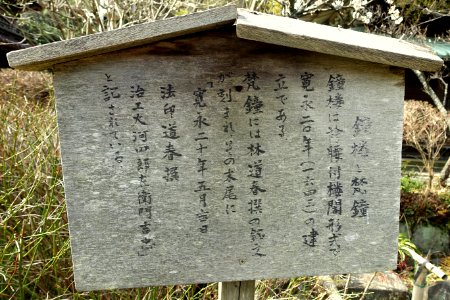 鐘楼と梵鐘
鐘楼は袴腰付楼閣形式で
寛永二〇年(一六四三)の建
立である
梵鐘には林道春撰の銘文
が刻まれその末尾に
「寛永二十年五月吉日
法印道春撰
治工大河四郎左衛門吉忠」
と記されている